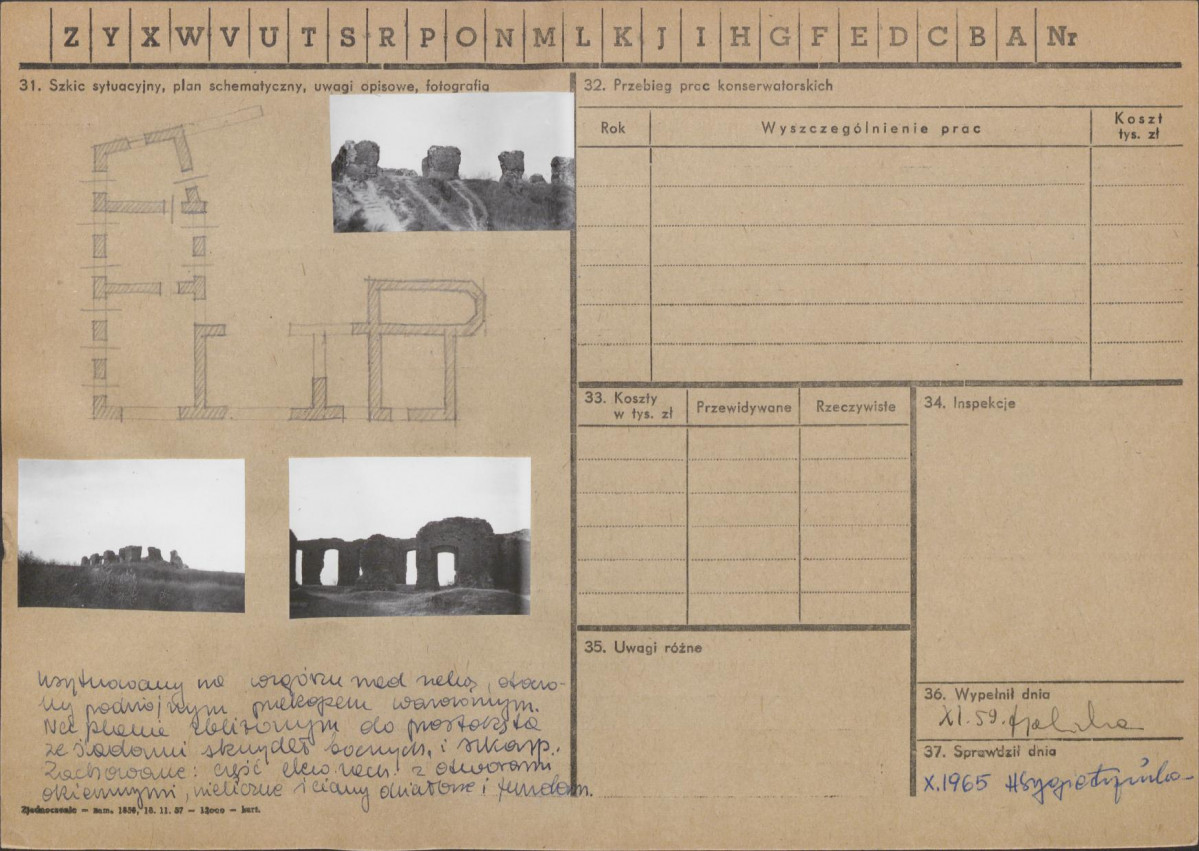 Z Y X W V U T S R P O N M L K J I H G F E D C B A Nr
31. Szkic sytuacyjny, plan schematyczny, uwagi opisowe, fotografia
usytuowany na wzgórzu nad rzeką, otoczo-
ny podwójnym przekopem warownym.
Na planie zbliżonym do prostokąta
ze śladami skrzydeł bocznych i skarp.
Zachowane: część elew. zach. z otworami
okiennymi, nieliczne ściany działowe i fundam.
Zjednoczenie — zam. 1636, 18. 11. 57 — 12000 — kart.
32. Przebieg prac konserwatorskich
Rok
Wyszczególnienie prac
Koszt
tys. zł
33. Koszty
w tys. zł
Przewidywane
Rzeczywiste
34. Inspekcje
35. Uwagi różne
36. Wypełnił dnia
XI.59.
37. Sprawdził dnia
X.1965